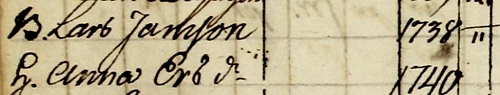 B. Lars Jansson 1738 "
H. Anna Ers dr 1740